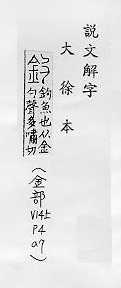 説文解字
大徐本
釣 鈎魚也从金
勺聲多嘯切
(金部
V14上
P4
a7)